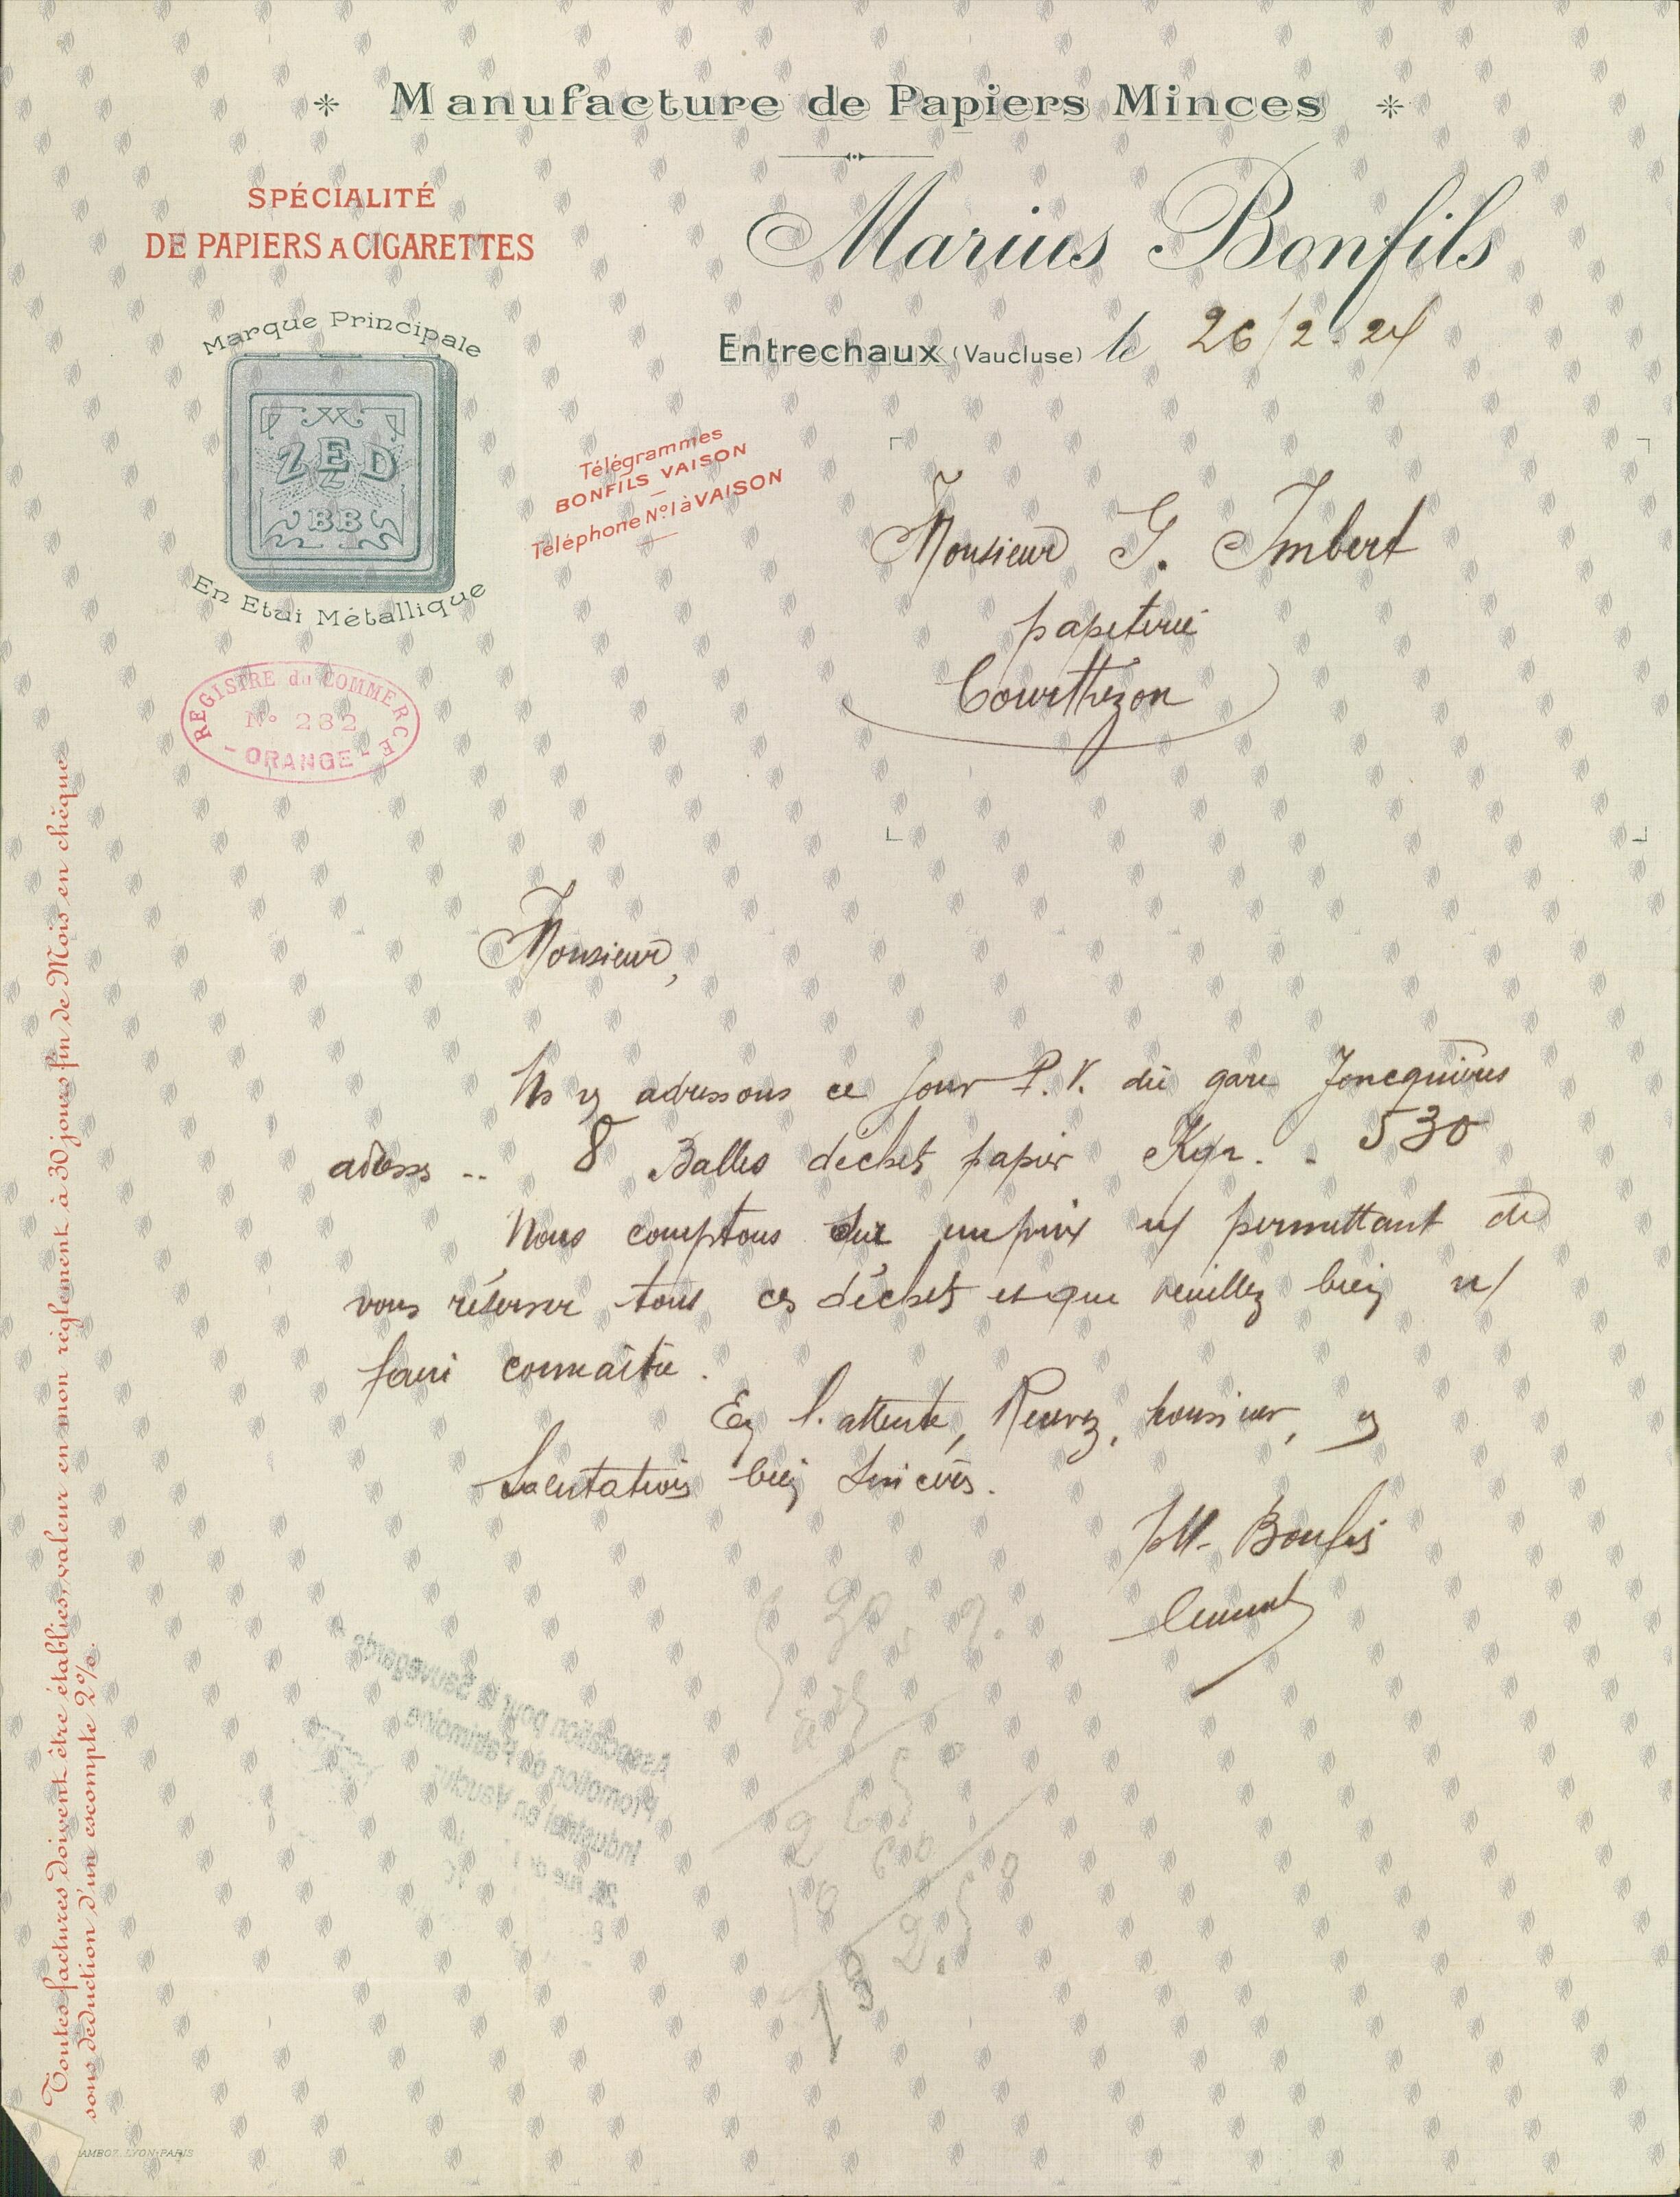 Manufacture de Papiers Minces
SPÉCIALITÉ
DE PAPIERS A CIGARETTES
Marius Bonfils
Entrechaux (Vaucluse) le 26/2.24
Marque Principale
ZED
Z
BB
En Etui Métallique
Télégrammes
BONFILS VAISON
Téléphone N° 1 à VAISON
Monsieur G. Imbert
papeterie
Courthezon
REGISTRE du COMMERCE
N° 282
- ORANGE -
Monsieur,
Ns vs adressons ce jour P.V. de gare Joncquières
8 Balles déchets papier Kgr. - 530
Nous comptons sur un prix n/ permettant de
vous réserver tous ces déchets et que veuillez bien n/
faire connaître.
En l'attente, Recevez, Monsieur, vs
Salutations bien sincères.
pM- Bonfils
Toutes factures doivent être établies, valeur en mon règlement à 30 jours fin de Mois en chèque
sous déduction d'un escompte 2%.
Association pour la Sauvegarde
Promotion du Patrimoine
Industriel en Vaucluse
265
600
LYON-PARIS